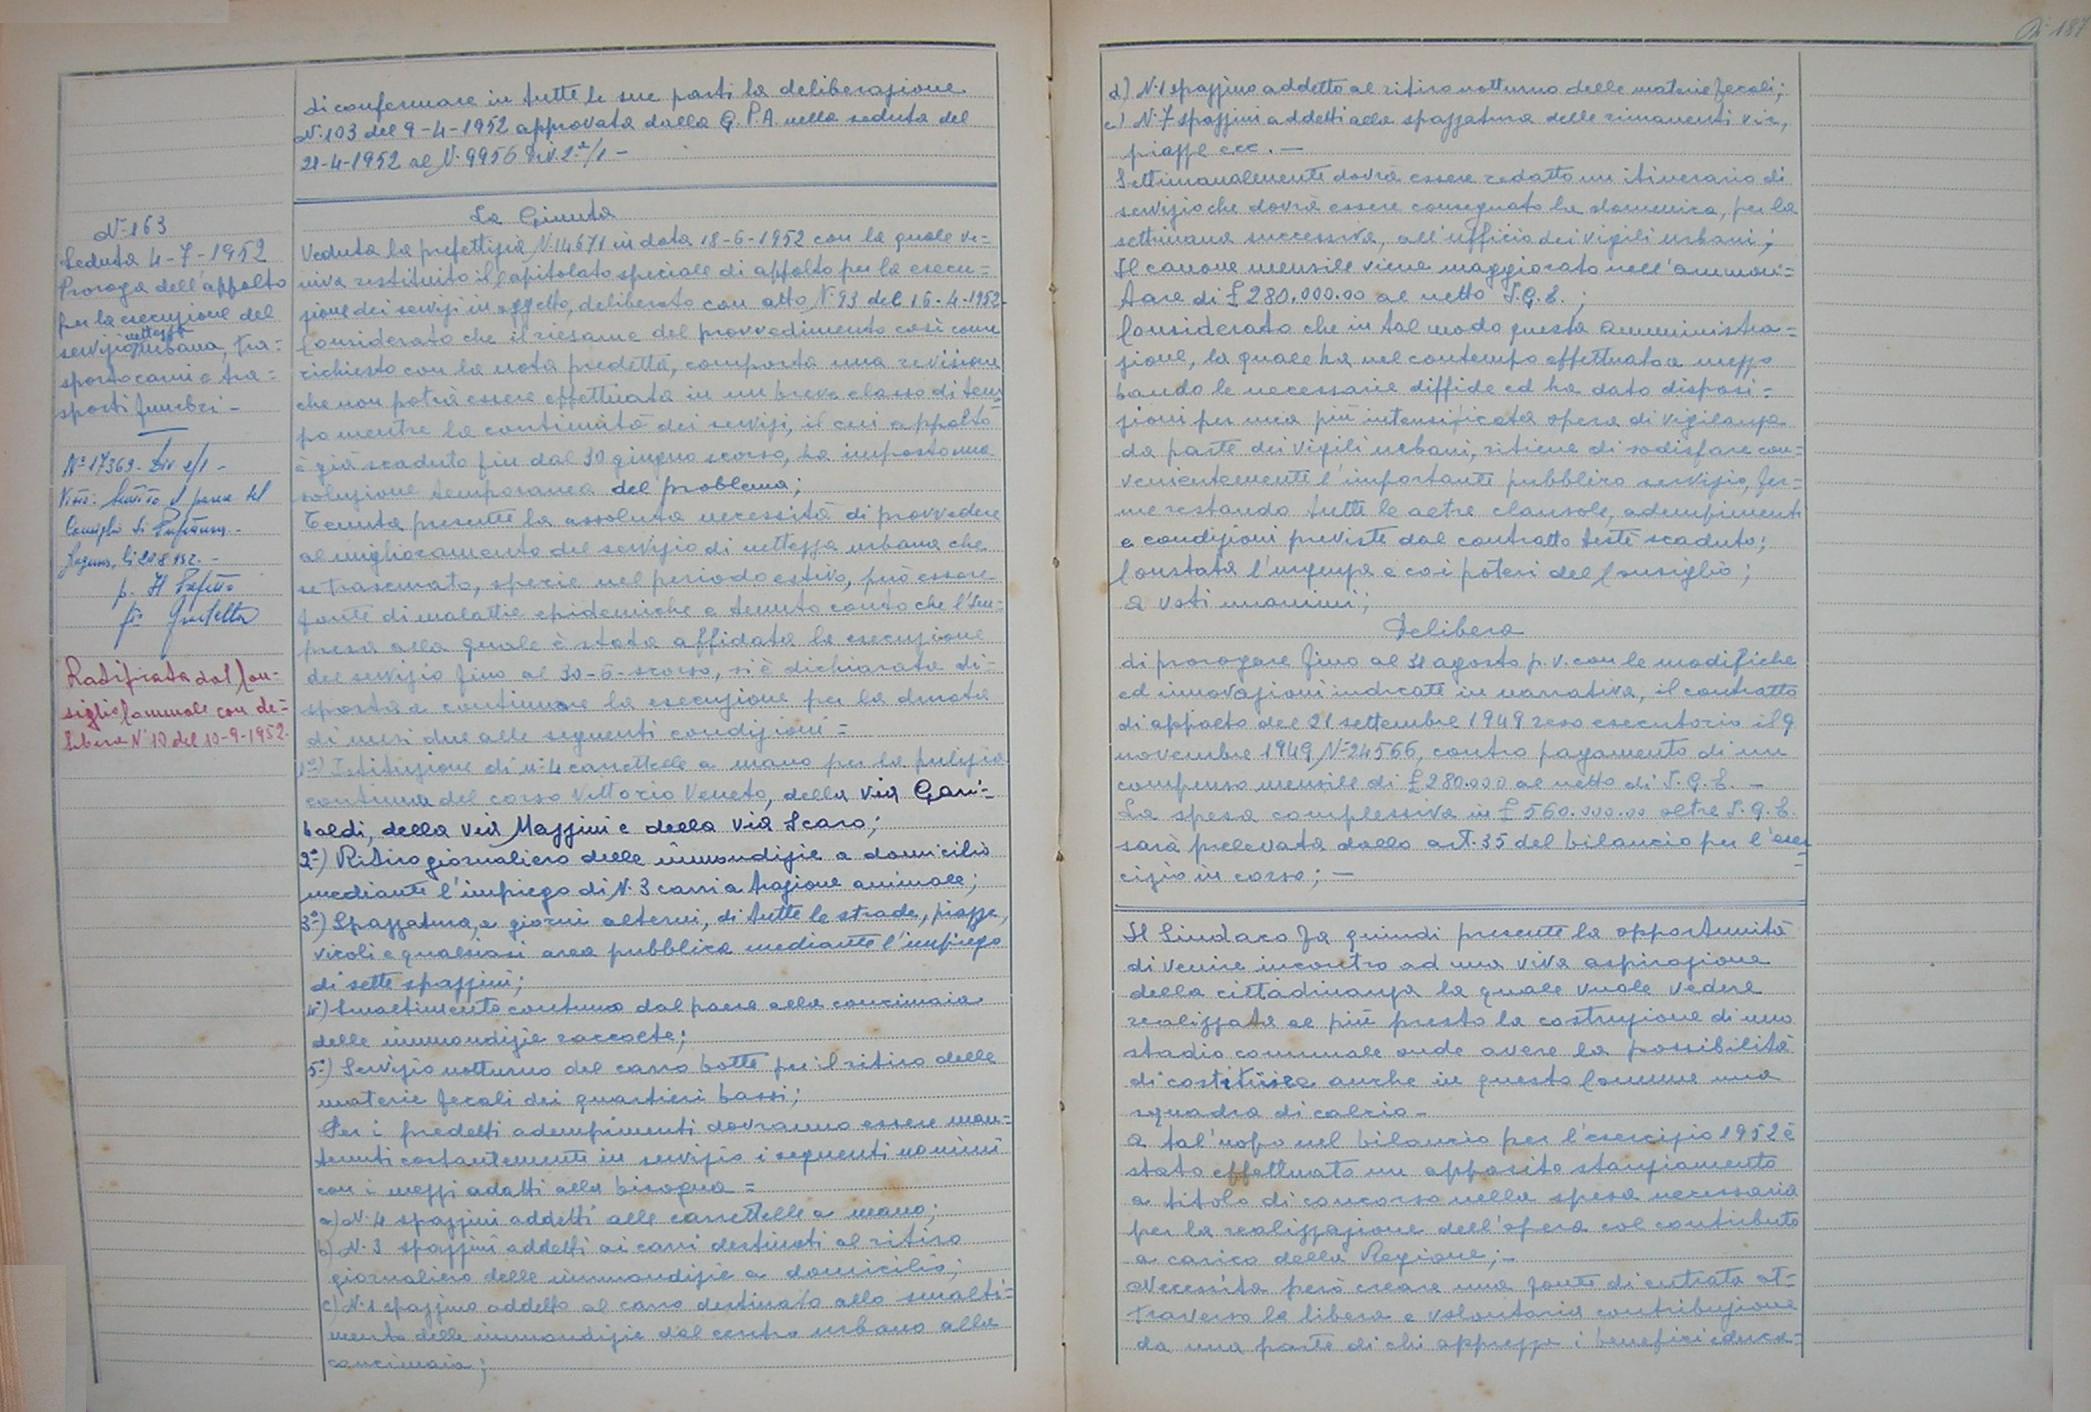 di confermare in tutte le sue parti la deliberazione
N° 103 del 9-4-1952 approvata dalla G.P.A. nella seduta del
21-4-1952 al N. 9956 Div. 2ª/1 -
N° 163
Seduta 4-7-1952
Proroga dell'appalto
per la esecuzione del
servizio nettezza urbana, tra=
sporto carni e tra=
sporti funebri -
N° 17369 - Div 2/1 -
Visto: Sentito il parere del
Consiglio di Prefettura -
Ragusa, li 21 8 952. -
p. Il Prefetto
Ratificata dal Con-
siglio Comunale con de=
libera N° 10 del 10-9-1952.
La Giunta
Veduta la prefettizia N. 14671 in data 18-6-1952 con la quale ve=
niva restituito il Capitolato speciale di appalto per la esecu=
zione dei servizi in oggetto, deliberato con atto N. 93 del 16-4-1952
Considerato che il riesame del provvedimento così come
richiesto con la nota predetta, comporta una revisione
che non potrà essere effettuata in un breve classo di tem=
po mentre la continuità dei servizi, il cui appalto
è già scaduto fin dal 30 giugno scorso, ha imposto una
soluzione temporanea del problema;
Tenuta presente la assoluta necessità di provvedere
al miglioramento del servizio di nettezza urbana che
se trascurato, specie nel periodo estivo, può essere
fonte di malattie epidemiche e tenuto conto che l'Im=
presa alla quale è stata affidata la esecuzione
del servizio fino al 30-6- scorso, si è dichiarata di=
sposta a continuare la esecuzione per la durata
di mesi due alle seguenti condizioni =
1°) Istituzione di n. 4 carrettelle a mano per la pulizia
continua del corso Vittorio Veneto, della via Gari=
baldi, della via Mazzini e della via Scaro;
2°) Ritiro giornaliero delle immondizie a domicilio
mediante l'impiego di N. 3 carri a trazione animale;
3°) Spazzatura, a giorni alterni, di tutte le strade, piazze,
vicoli e qualsiasi area pubblica mediante l'impiego
di sette spazzini;
4°) Smaltimento continuo dal paese alla concimaia
delle immondizie raccolte;
5°) Servizio notturno del carro botte per il ritiro delle
materie fecali dei quartieri bassi;
Per i predetti adempimenti dovranno essere man=
tenuti costantemente in servizio i seguenti uomini
con i mezzi adatti alla bisogna =
a) N. 4 spazzini addetti alle carrettelle a mano;
b) N. 3 spazzini addetti ai carri destinati al ritiro
giornaliero delle immondizie a domicilio;
c) N. 1 spazzino addetto al carro destinato allo smalti=
mento delle immondizie dal centro urbano alla
concimaia;
187
d) N. 1 spazzino addetto al ritiro notturno delle materie fecali;
e) N. 7 spazzini addetti alla spazzatura delle rimanenti vie,
piazze ecc. -
Settimanalmente dovrà essere redatto un itinerario di
servizio che dovrà essere consegnato la domenica, per la
settimana successiva, all'ufficio dei vigili urbani;
Il canone mensile viene maggiorato nell'ammon=
tare di £ 280.000.00 al netto I.G.E.;
Considerato che in tal modo questa Amministra=
zione, la quale ha nel contempo effettuato a mezzo
bando le necessarie diffide ed ha dato disposi=
zioni per una più intensificata opera di vigilanza
da parte dei vigili urbani, ritiene di sodisfare con=
venientemente l'importante pubblico servizio, fer=
me restando tutte le altre clausole, adempimenti
e condizioni previste dal contratto testè scaduto;
Constata l'urgenza e coi poteri del Consiglio;
a voti unanimi;
Delibera
di prorogare fino al 31 agosto p.v. con le modifiche
ed innovazioni indicate in narrativa, il contratto
di appalto del 21 settembre 1949 reso esecutorio il 9
novembre 1949 N° 24566, contro pagamento di un
compenso mensile di £ 280.000 al netto di I.G.E. -
La spesa complessiva in £ 560.000.00 oltre I.G.E.
sarà prelevata dallo art. 35 del bilancio per l'eser=
cizio in corso; -
Il Sindaco fa quindi presente la opportunità
di venire incontro ad una viva aspirazione
della cittadinanza la quale vuole vedere
realizzata al più presto la costruzione di uno
stadio comunale onde avere la possibilità
di costituire anche in questo Comune una
squadra di calcio -
A tal'uopo nel bilancio per l'esercizio 1952 è
stato effettuato un apposito stanziamento
a titolo di concorso nella spesa necessaria
per la realizzazione dell'opera col contributo
a carico della Regione; -
Necessita però creare una fonte di entrata at=
traverso la libera e volontaria contribuzione
da una parte di chi apprezza i benefici educa=